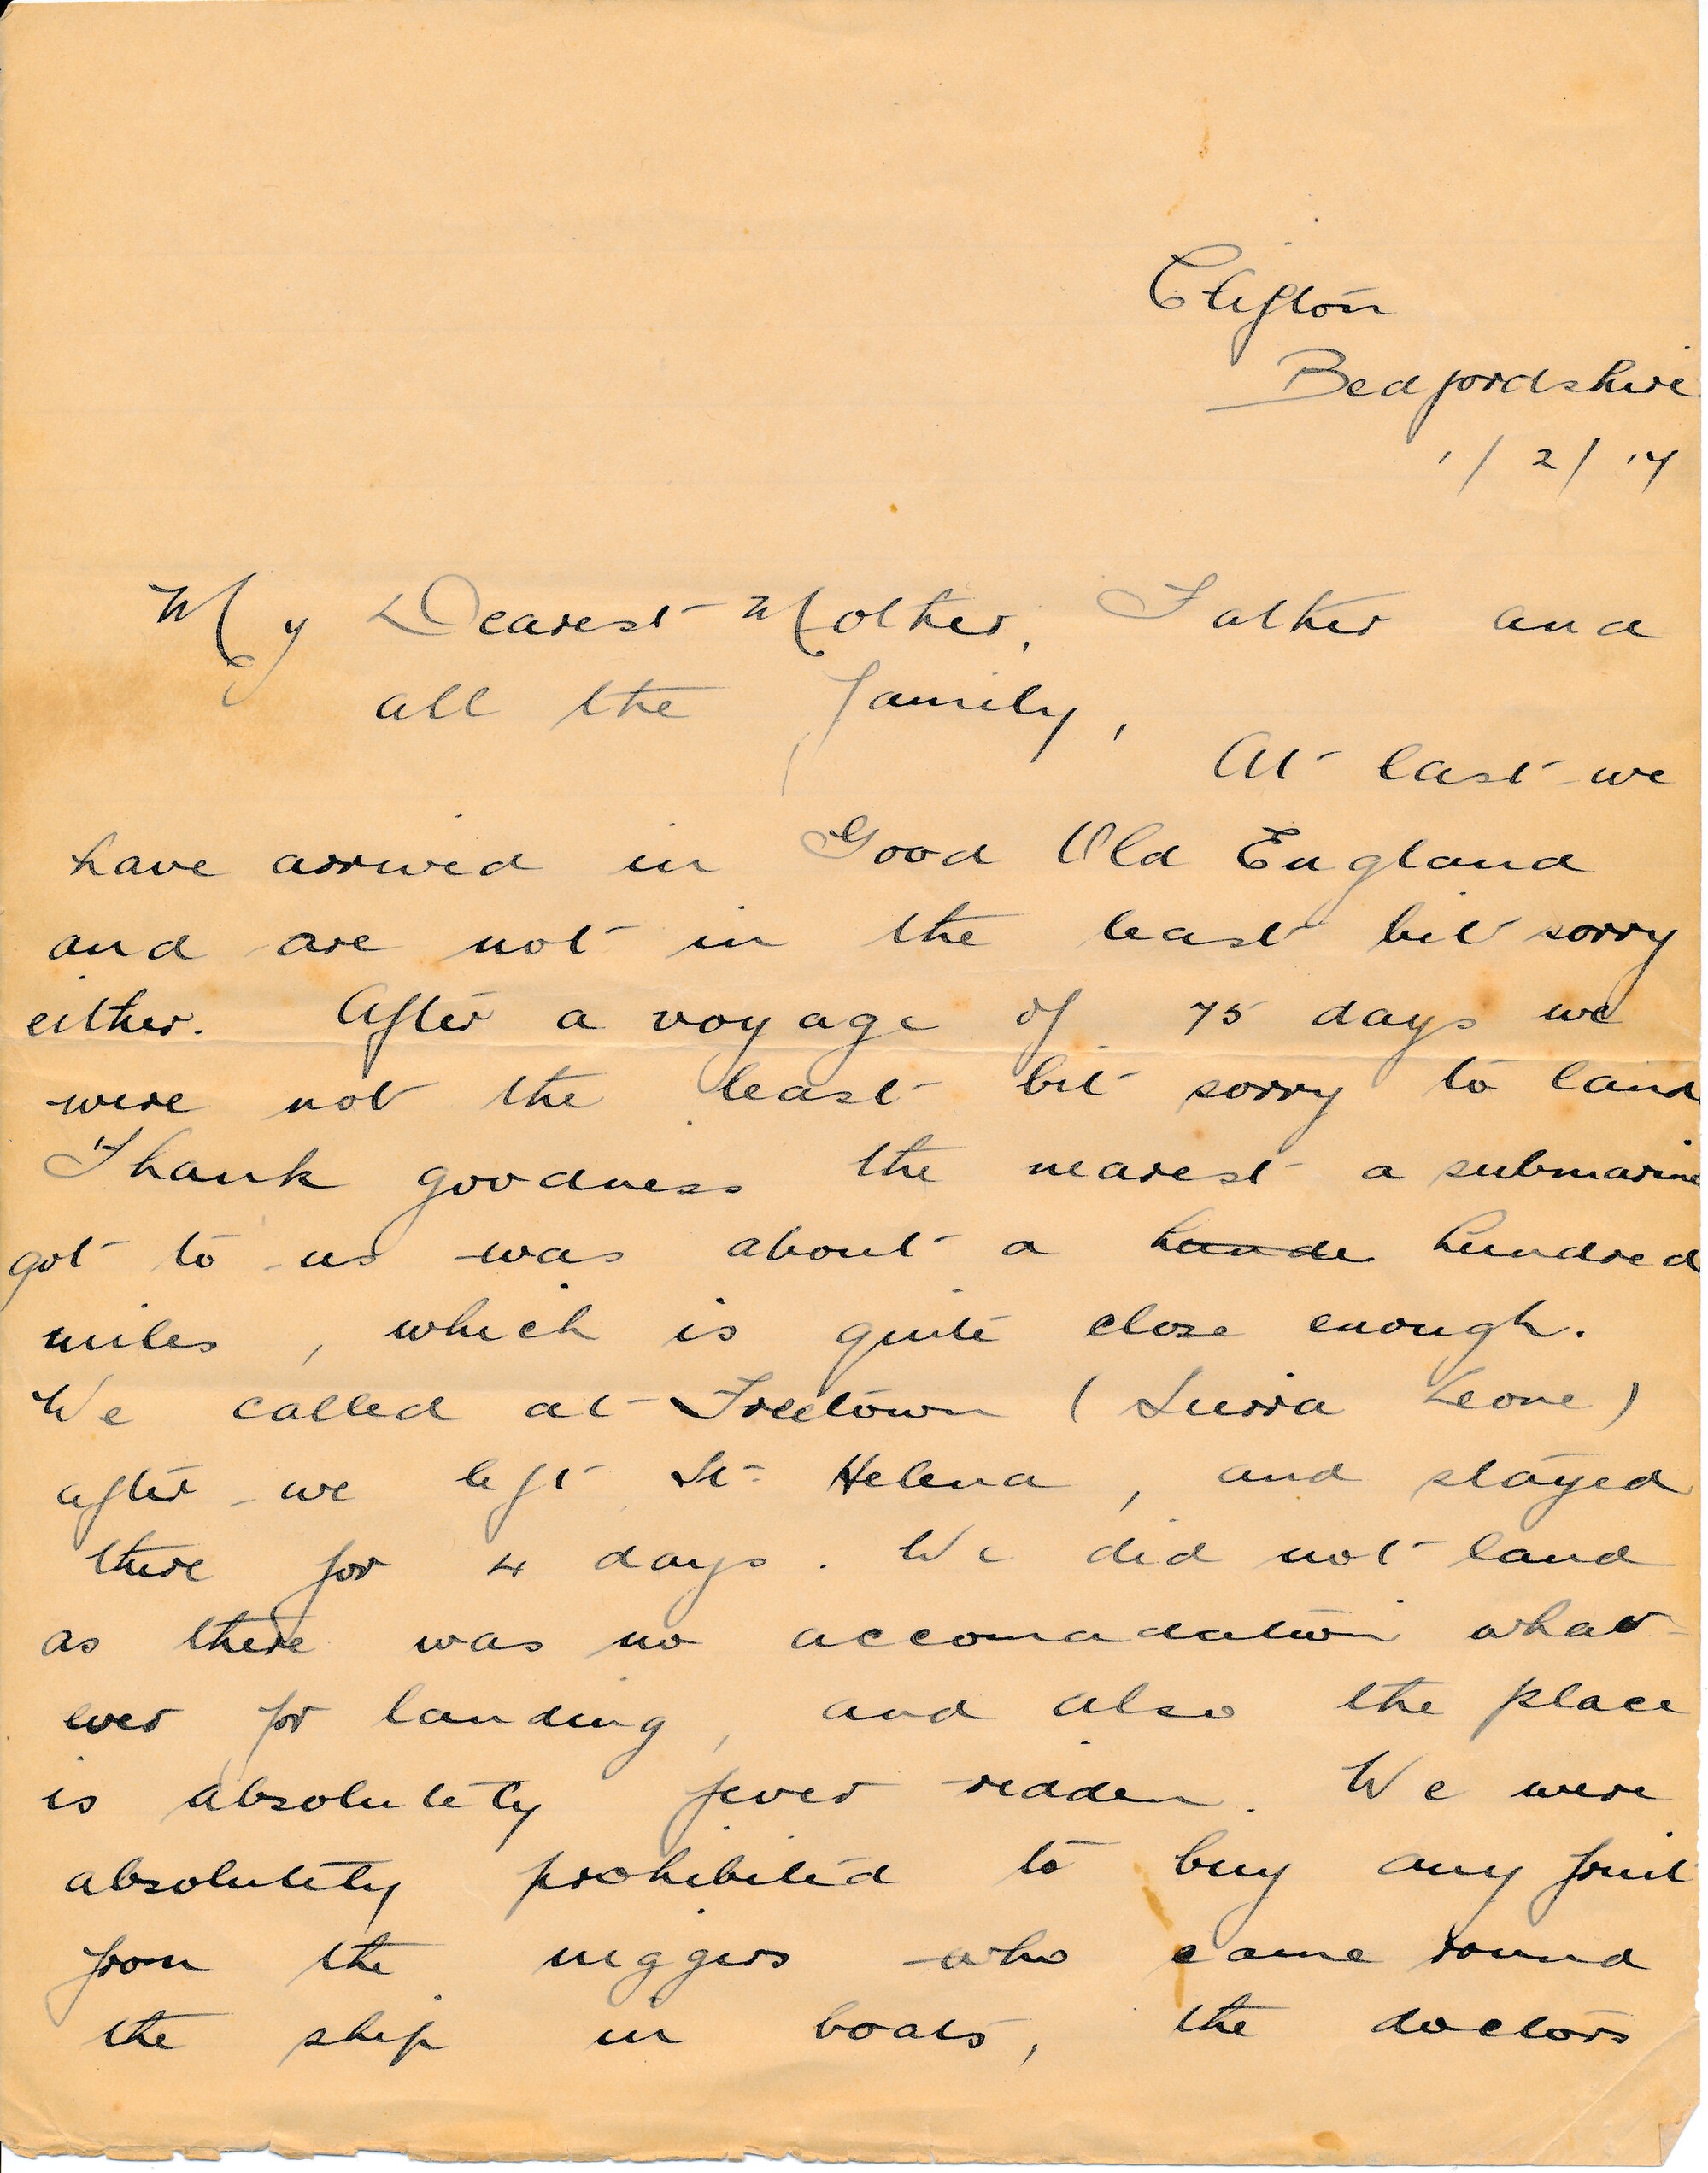 Clifton
Bedfordshire
1/2/17
My Dearest Mother, Father and
all the family,
At last we
have arrived in Good Old England
and are not in the least bit sorry
either. After a voyage of 75 days we
were not the least bit sorry to land
Thank goodness the nearest a submarine
got to us was about a hunde hundred
miles, which is quite close enough.
We called at Freetown (Sierra Leone)
after we left St. Helena, and stayed
there for 4 days. We did not land
as there was no accomadation what-
ever for landing, and also the place
is absolutely fever ridden. We were
absolutely prohibited to buy any fruit
from the niggers who came round
the ship in boats, the doctors